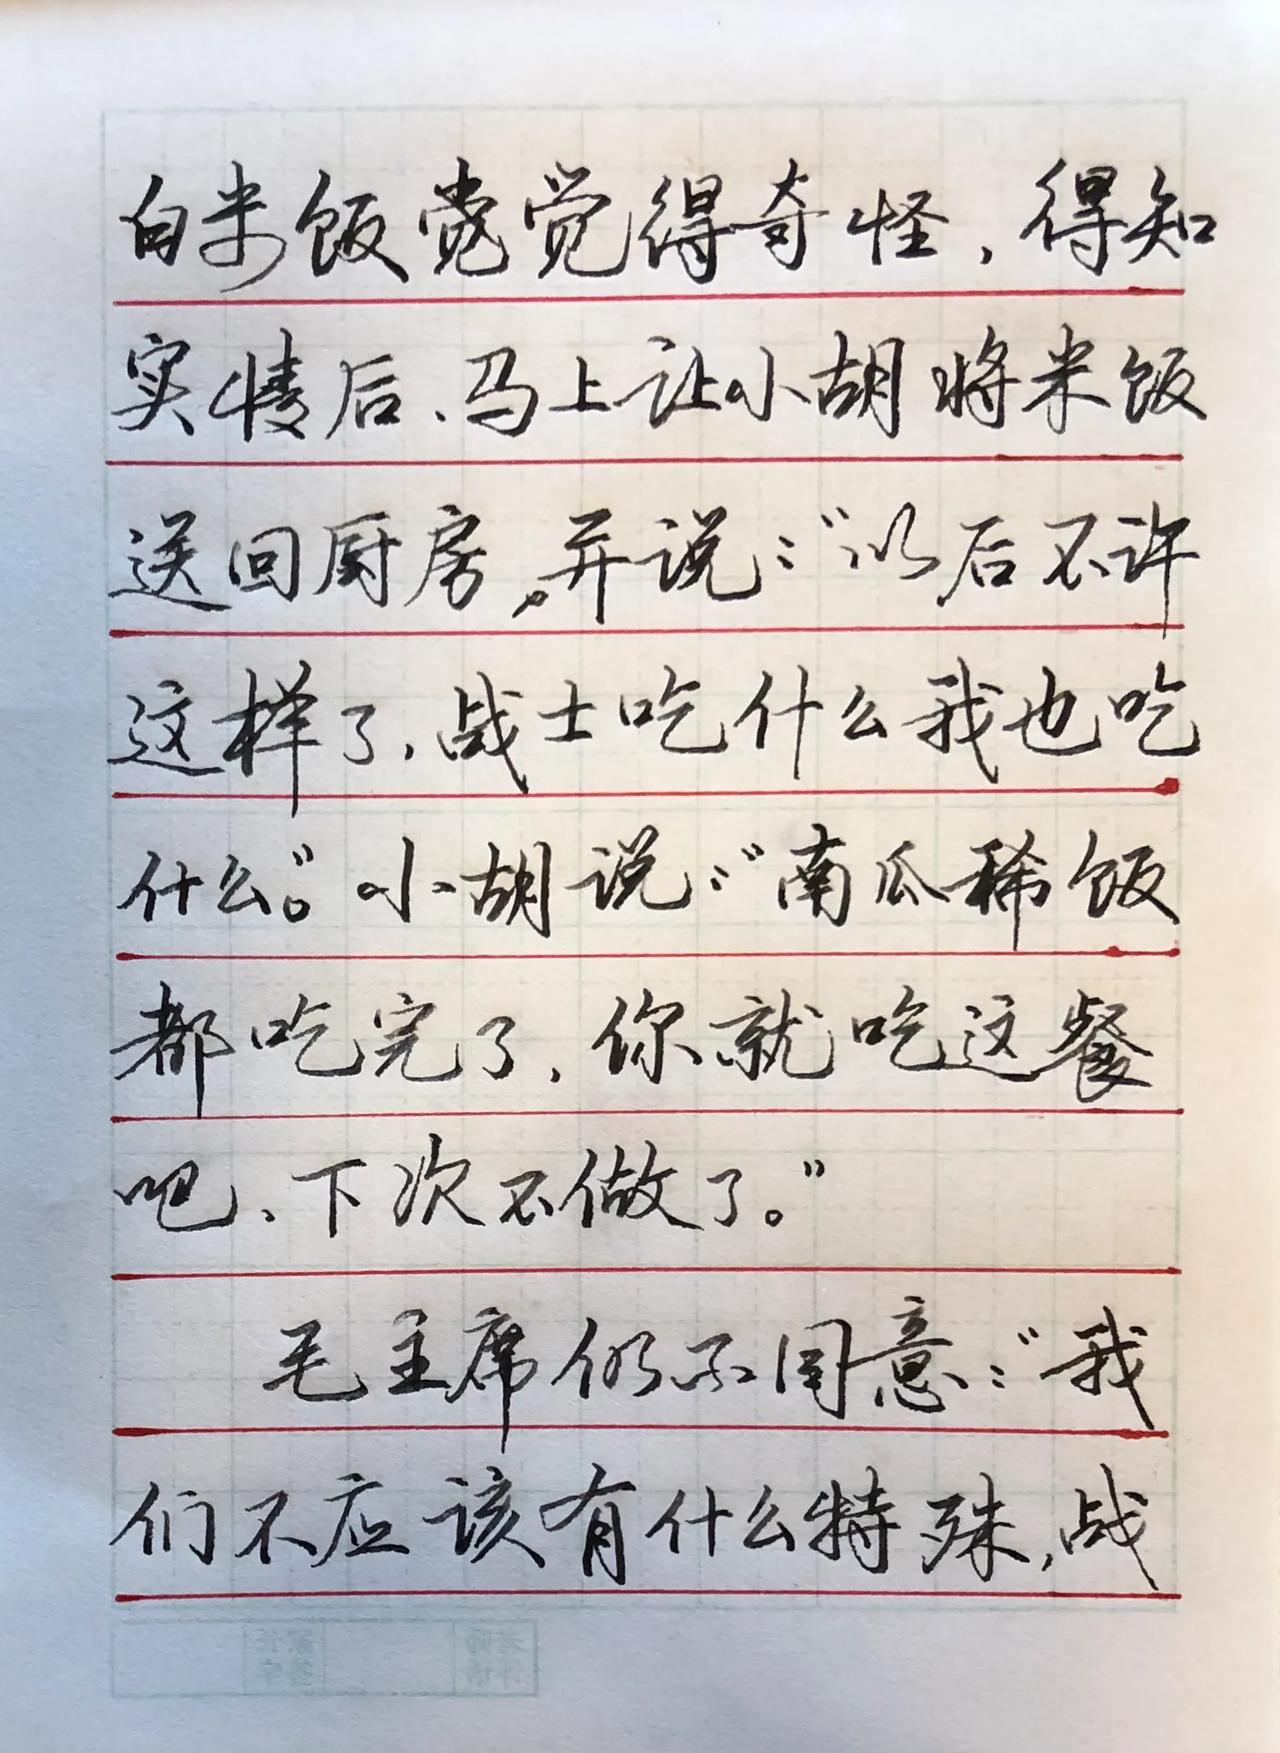 白米饭觉觉得奇怪，得知
实情后、马上让小胡将米饭
送回厨房，并说：“以后不许
这样了，战士吃什么我也吃
什么。”小胡说：“南瓜稀饭
都吃完了，你就吃这餐
吧、下次不做了。”
毛主席仍不同意：“我
们不应该有什么特殊，战